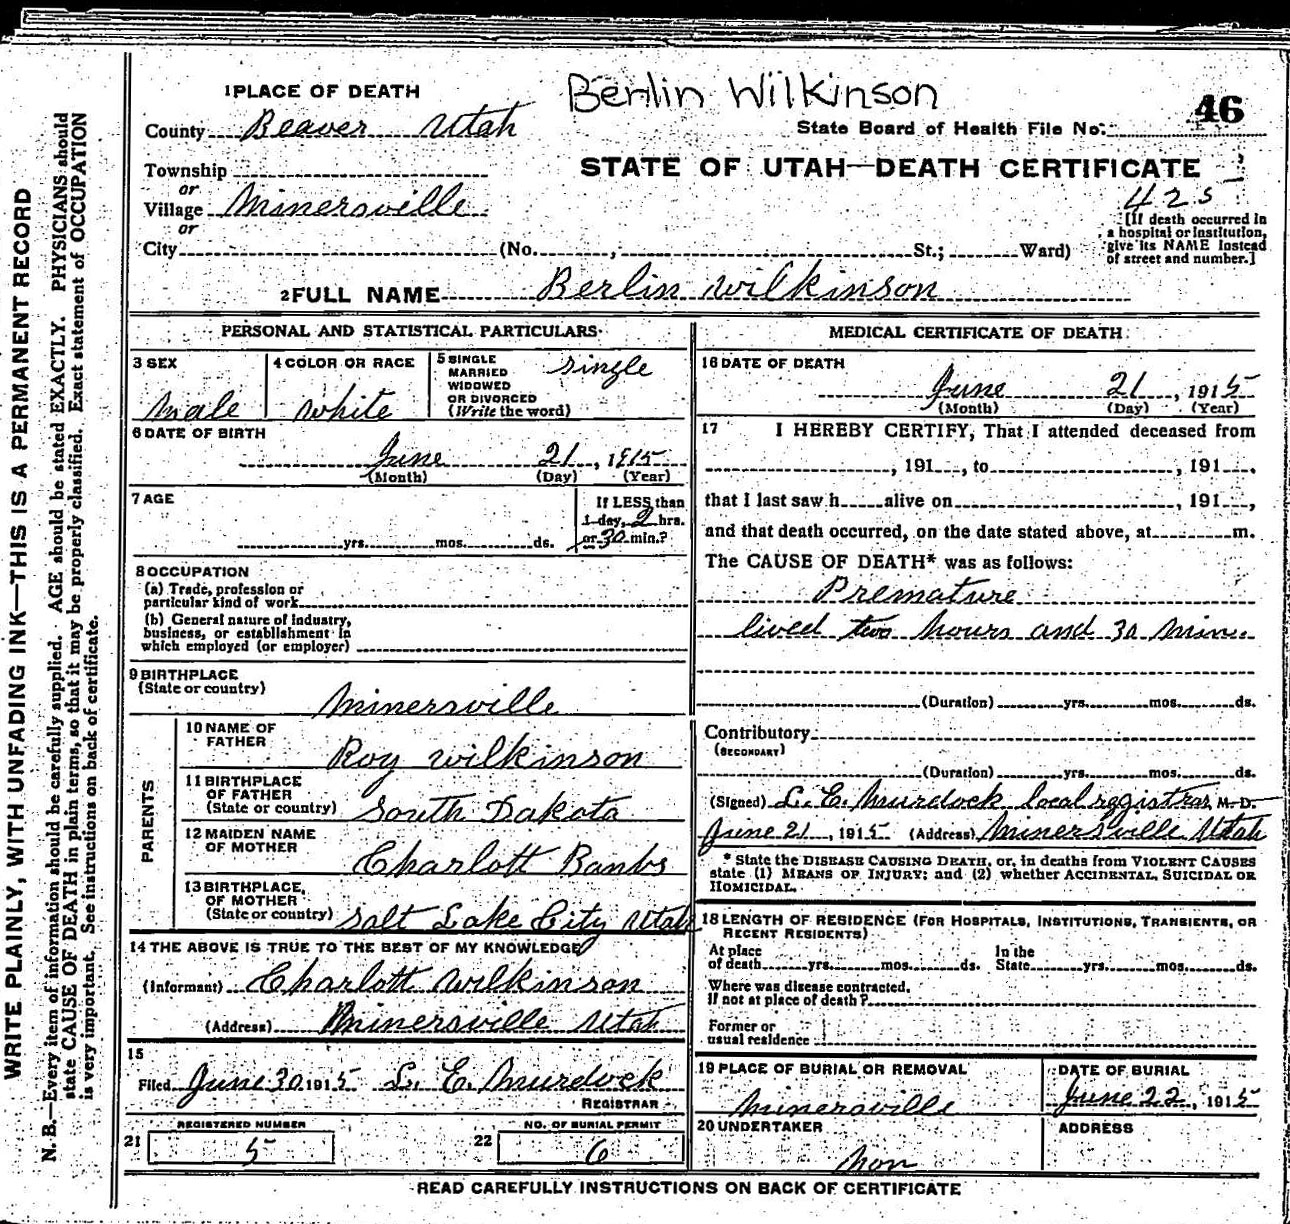 WRITE PLAINLY, WITH UNFADING INK—THIS IS A PERMANENT RECORD
N. B.—Every item of information should be carefully supplied. AGE should be stated EXACTLY. PHYSICIANS should
state CAUSE OF DEATH in plain terms, so that it may be properly classified. Exact statement of OCCUPATION
is very important. See instructions on back of certificate.
Berlin Wilkinson
1 PLACE OF DEATH
County Beaver Utah
State Board of Health File No. 46
Township
or
Village Minersville
or
City (No. , St.; Ward)
STATE OF UTAH—DEATH CERTIFICATE
425
[If death occurred in
a hospital or institution,
give its NAME instead
of street and number.]
2 FULL NAME Berlin Wilkinson
PERSONAL AND STATISTICAL PARTICULARS
3 SEX
Male
4 COLOR OR RACE
White
5 SINGLE
MARRIED
WIDOWED
OR DIVORCED
(Write the word)
single
6 DATE OF BIRTH
June 21, 1915
(Month) (Day) (Year)
7 AGE
yrs. mos. ds.
If LESS than
1 day, 2 hrs.
or 30 min.?
8 OCCUPATION
(a) Trade, profession or
particular kind of work
(b) General nature of industry,
business, or establishment in
which employed (or employer)
9 BIRTHPLACE
(State or country)
Minersville
PARENTS
10 NAME OF
FATHER
Roy Wilkinson
11 BIRTHPLACE
OF FATHER
(State or country) South Dakota
12 MAIDEN NAME
OF MOTHER
Charlott Banks
13 BIRTHPLACE,
OF MOTHER
(State or country) Salt Lake City Utah
14 THE ABOVE IS TRUE TO THE BEST OF MY KNOWLEDGE
(Informant) Charlott Wilkinson
(Address) Minersville Utah
15
Filed June 30 1915 L. E. Murdock
REGISTRAR
21
REGISTERED NUMBER
5
22
NO. OF BURIAL PERMIT
6
MEDICAL CERTIFICATE OF DEATH
16 DATE OF DEATH
June 21, 1915
(Month) (Day) (Year)
17 I HEREBY CERTIFY, That I attended deceased from
, 191 , to , 191 ,
that I last saw h alive on , 191 ,
and that death occurred, on the date stated above, at m.
The CAUSE OF DEATH* was as follows:
Premature
lived two hours and 30 min.
(Duration) yrs. mos. ds.
Contributory
(SECONDARY)
(Duration) yrs. mos. ds.
(Signed) L. E. Murdock local registrar, M. D.
June 21, 1915 (Address) Minersville Utah
* State the DISEASE CAUSING DEATH, or, in deaths from VIOLENT CAUSES
state (1) MEANS OF INJURY; and (2) whether ACCIDENTAL, SUICIDAL OR
HOMICIDAL.
18 LENGTH OF RESIDENCE (FOR HOSPITALS, INSTITUTIONS, TRANSIENTS, OR
RECENT RESIDENTS)
At place In the
of death yrs. mos. ds. State yrs. mos. ds.
Where was disease contracted.
if not at place of death?
Former or
usual residence
19 PLACE OF BURIAL OR REMOVAL
Minersville
DATE OF BURIAL
June 22, 1915
20 UNDERTAKER
non
ADDRESS
READ CAREFULLY INSTRUCTIONS ON BACK OF CERTIFICATE